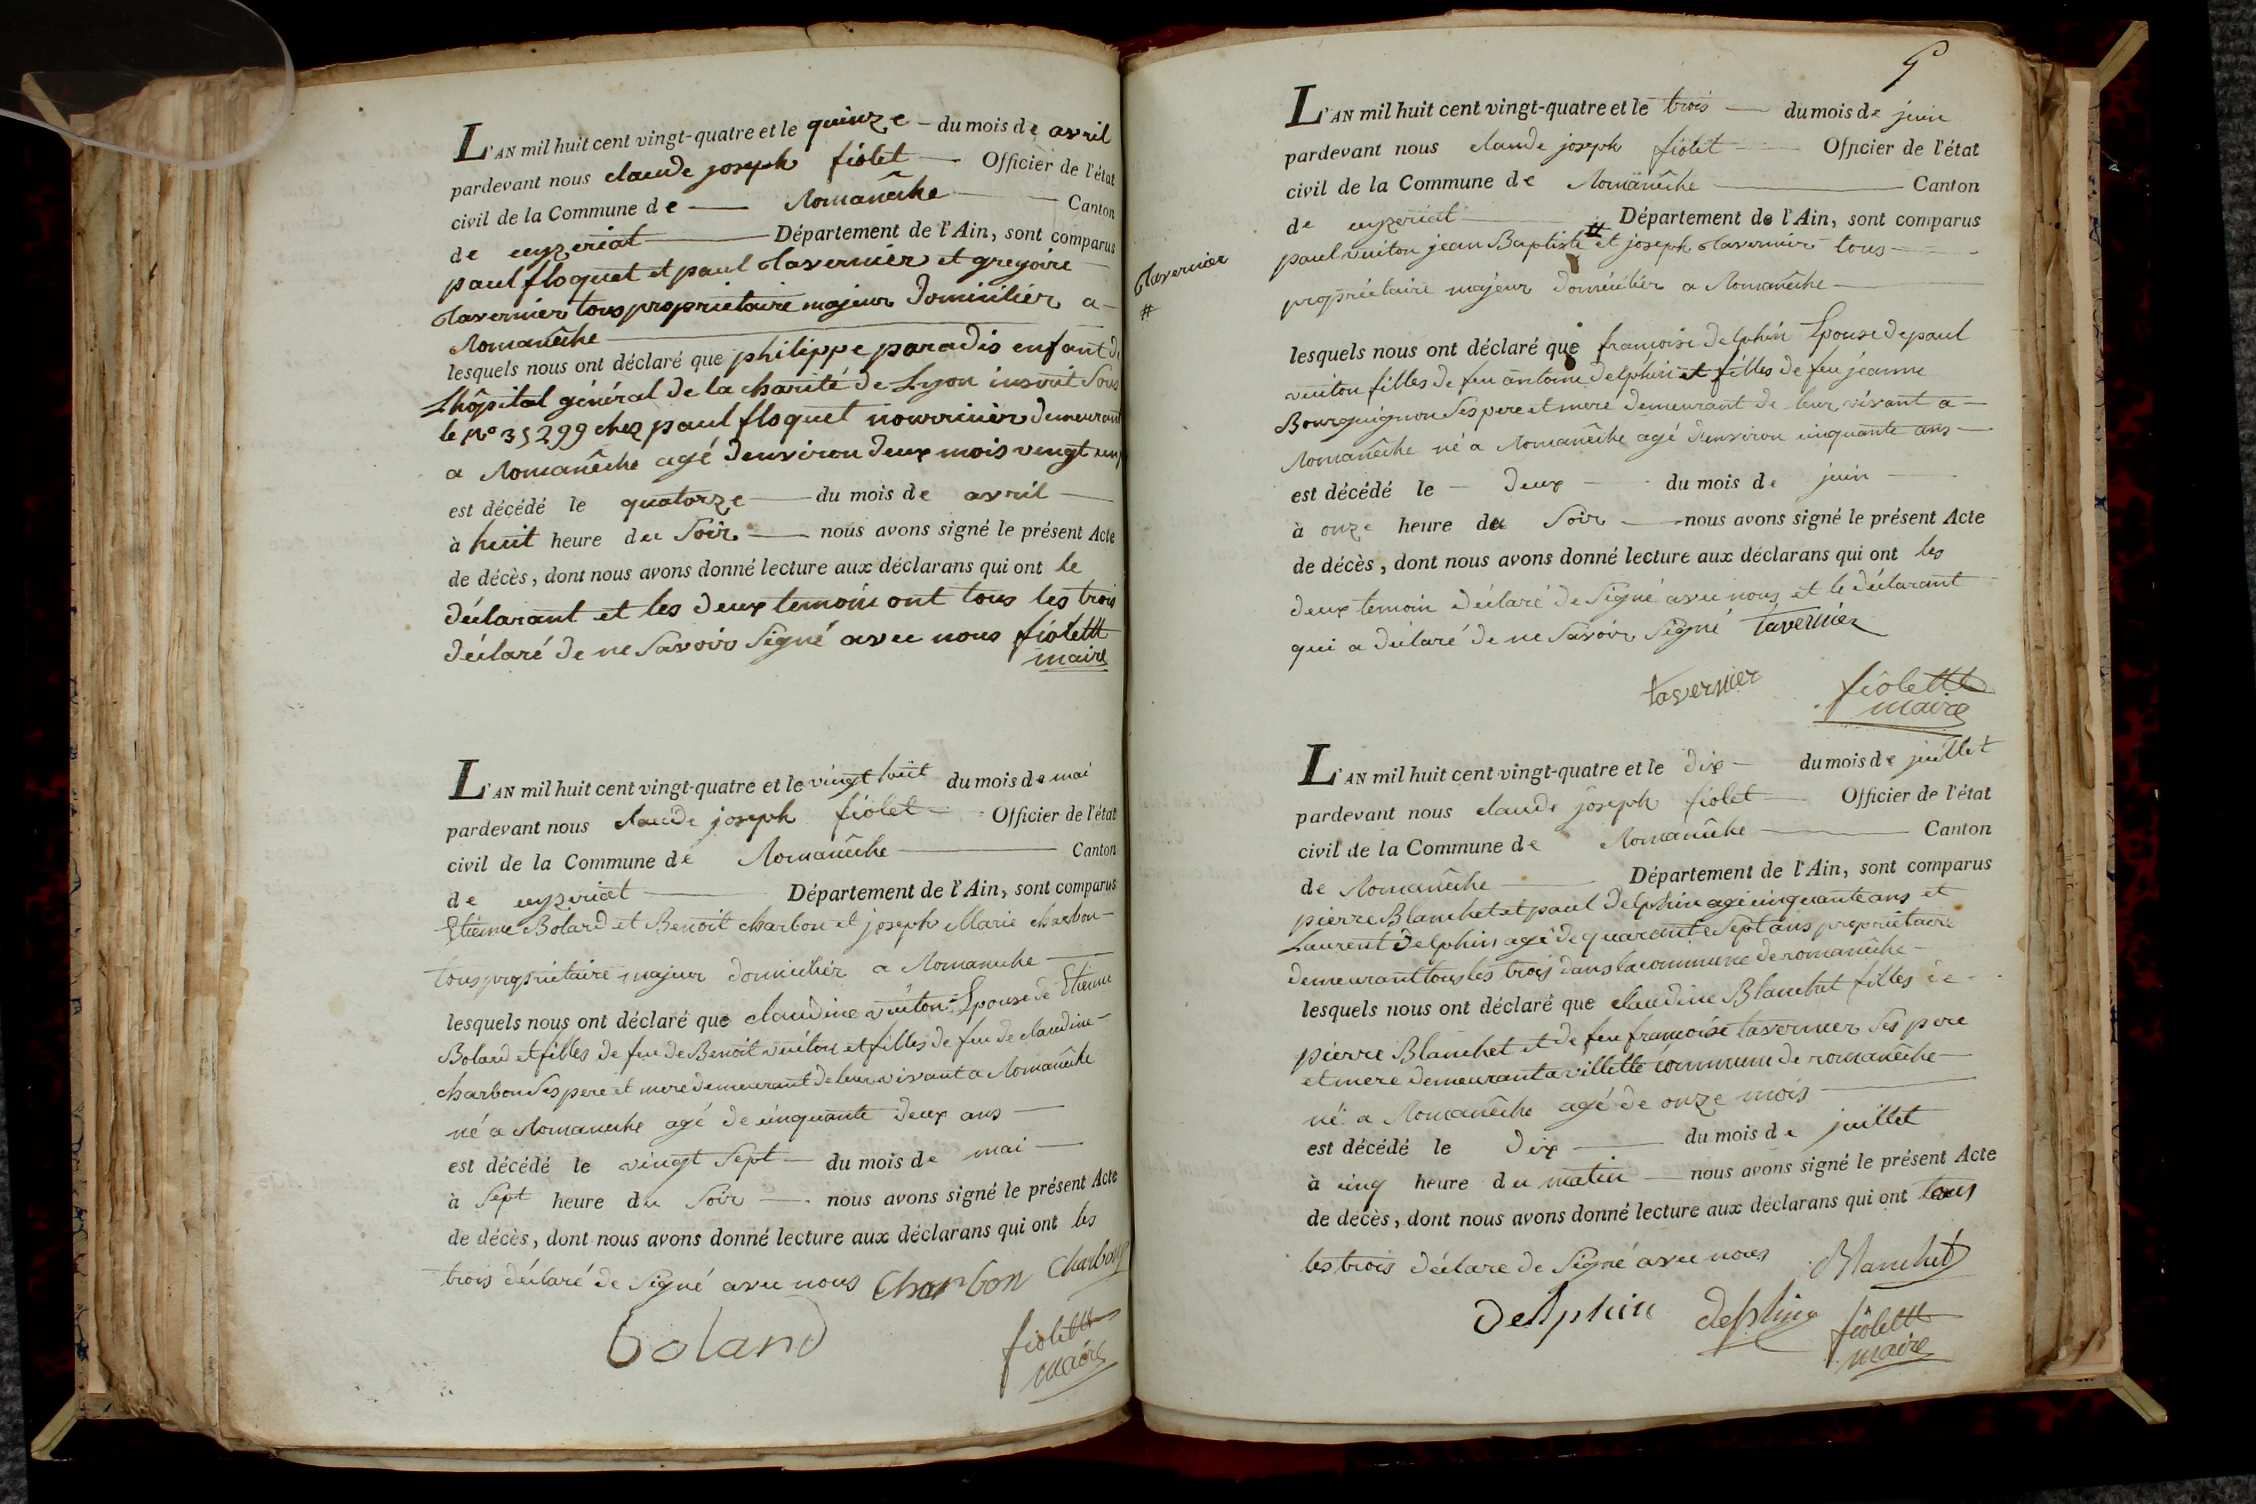 L'AN mil huit cent vingt-quatre et le quinze du mois de avril
pardevant nous claude joseph fiolet Officier de l'état
civil de la Commune de Romanêche Canton
de ceyzeriat Département de l'Ain, sont comparus
paul floquet et paul tavernier et gregoire
tavernier tous proprietaire majeur domicilier a
Romanêche
lesquels nous ont déclaré que philippe paradis enfant de
L'hôpital général de la charité de Lyon inscrit sous
le N° 35299 chez paul floquet nourricier demeurant
a Romanêche agé denviron deux mois vingt
est décédé le quatorze du mois de avril
à huit heure du Soir nous avons signé le présent Acte
de décès, dont nous avons donné lecture aux déclarans qui ont le
déclarant et les deux temoin ont tous les trois
déclaré de ne Savoir Signé avec nous fiolettt
maire
L'AN mil huit cent vingt-quatre et le vingt huit du mois de mai
pardevant nous claude joseph fiolet Officier de l'état
civil de la Commune de Romanêche Canton
de ceyzeriat Département de l'Ain, sont comparus
Etienne Bolard et Benoit charbon et joseph Marie charbon
tous proprietaire majeur domicilier a Romaneche
lesquels nous ont déclaré que claudine vuiton Epouse de Etienne
Boland et filles de feu de Benoit vuiton et filles de feu de claudine
charbon Ses pere et mere demeurant de leur vivant a Romanêche
né a Romaneche agé de cinquante deux ans
est décédé le vingt Sept du mois de mai
à Sept heure du Soir nous avons signé le présent Acte
de décès, dont nous avons donné lecture aux déclarans qui ont les
trois déclaré de Signé avec nous Charbon Charbon
boland
fiolettt
maire
L'AN mil huit cent vingt-quatre et le trois du mois de juin
pardevant nous claude joseph fiolet Officier de l'état
civil de la Commune de Romanêche Canton
de ceyzeriat Département de l'Ain, sont comparus
tavernier
#
paul vuiton jean Baptiste # et joseph tavernier tous
propriétaire majeur domicilier a Romanêche
lesquels nous ont déclaré que francoise delphin Epouse de paul
vuiton filles de feu antoine delphin et filles de feu jeanne
Bourguignon Ses pere et mere demeurant de leur vivant a
Romanêche né a Romanêche agé denviron cinquante ans
est décédé le deux du mois de juin
à onze heure du Soir nous avons signé le présent Acte
de décès, dont nous avons donné lecture aux déclarans qui ont les
deux temoin déclaré de Signé avec nous et le déclarant
qui a déclaré de ne Savoir Signé tavernier
tavernier
fiolettt
maire
L'AN mil huit cent vingt-quatre et le dix du mois de juillet
pardevant nous claude joseph fiolet Officier de l'état
civil de la Commune de Romanêche Canton
de Romanêche Département de l'Ain, sont comparus
pierre Blanchet et paul delphin agé cinquante ans et
Laurent delphin agé de quarante Sept ans propriétaire
demeurant tous les trois dans la commune de romanêche
lesquels nous ont déclaré que claudine Blanchet filles de
pierre Blanchet et de feu françoise tavernier Ses pere
et mere demeurant a villette commune de romanêche
né a Romanêche agé de onze mois
est décédé le dix du mois de juillet
à cinq heure du matin nous avons signé le présent Acte
de décès, dont nous avons donné lecture aux déclarans qui ont tous
les trois déclare de Signé avec nous Blanchet
Delphin delphin fiolettt
maire